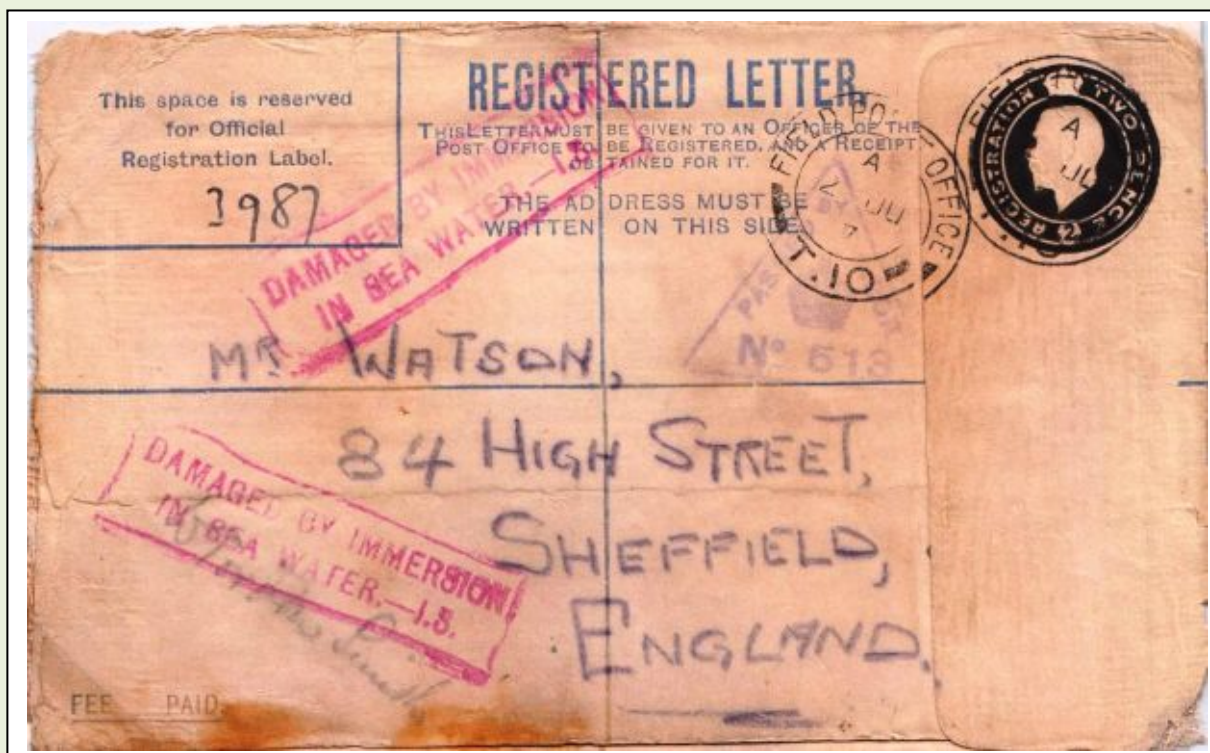 This space is reserved
for Official
Registration Label.
3987
REGISTERED LETTER.
THIS LETTER MUST BE GIVEN TO AN OFFICER OF THE
POST OFFICE TO BE REGISTERED, AND A RECEIPT
OBTAINED FOR IT.
THE ADDRESS MUST BE
WRITTEN ON THIS SIDE.
FIELD POST OFFICE
A
T.10
REGISTRATION TWO PENCE
A
DAMAGED BY IMMERSION
IN SEA WATER.—I.S.
BY
No 613
MR WATSON,
84 HIGH STREET,
SHEFFIELD,
ENGLAND.
DAMAGED BY IMMERSION
IN SEA WATER.—I.S.
FEE PAID.